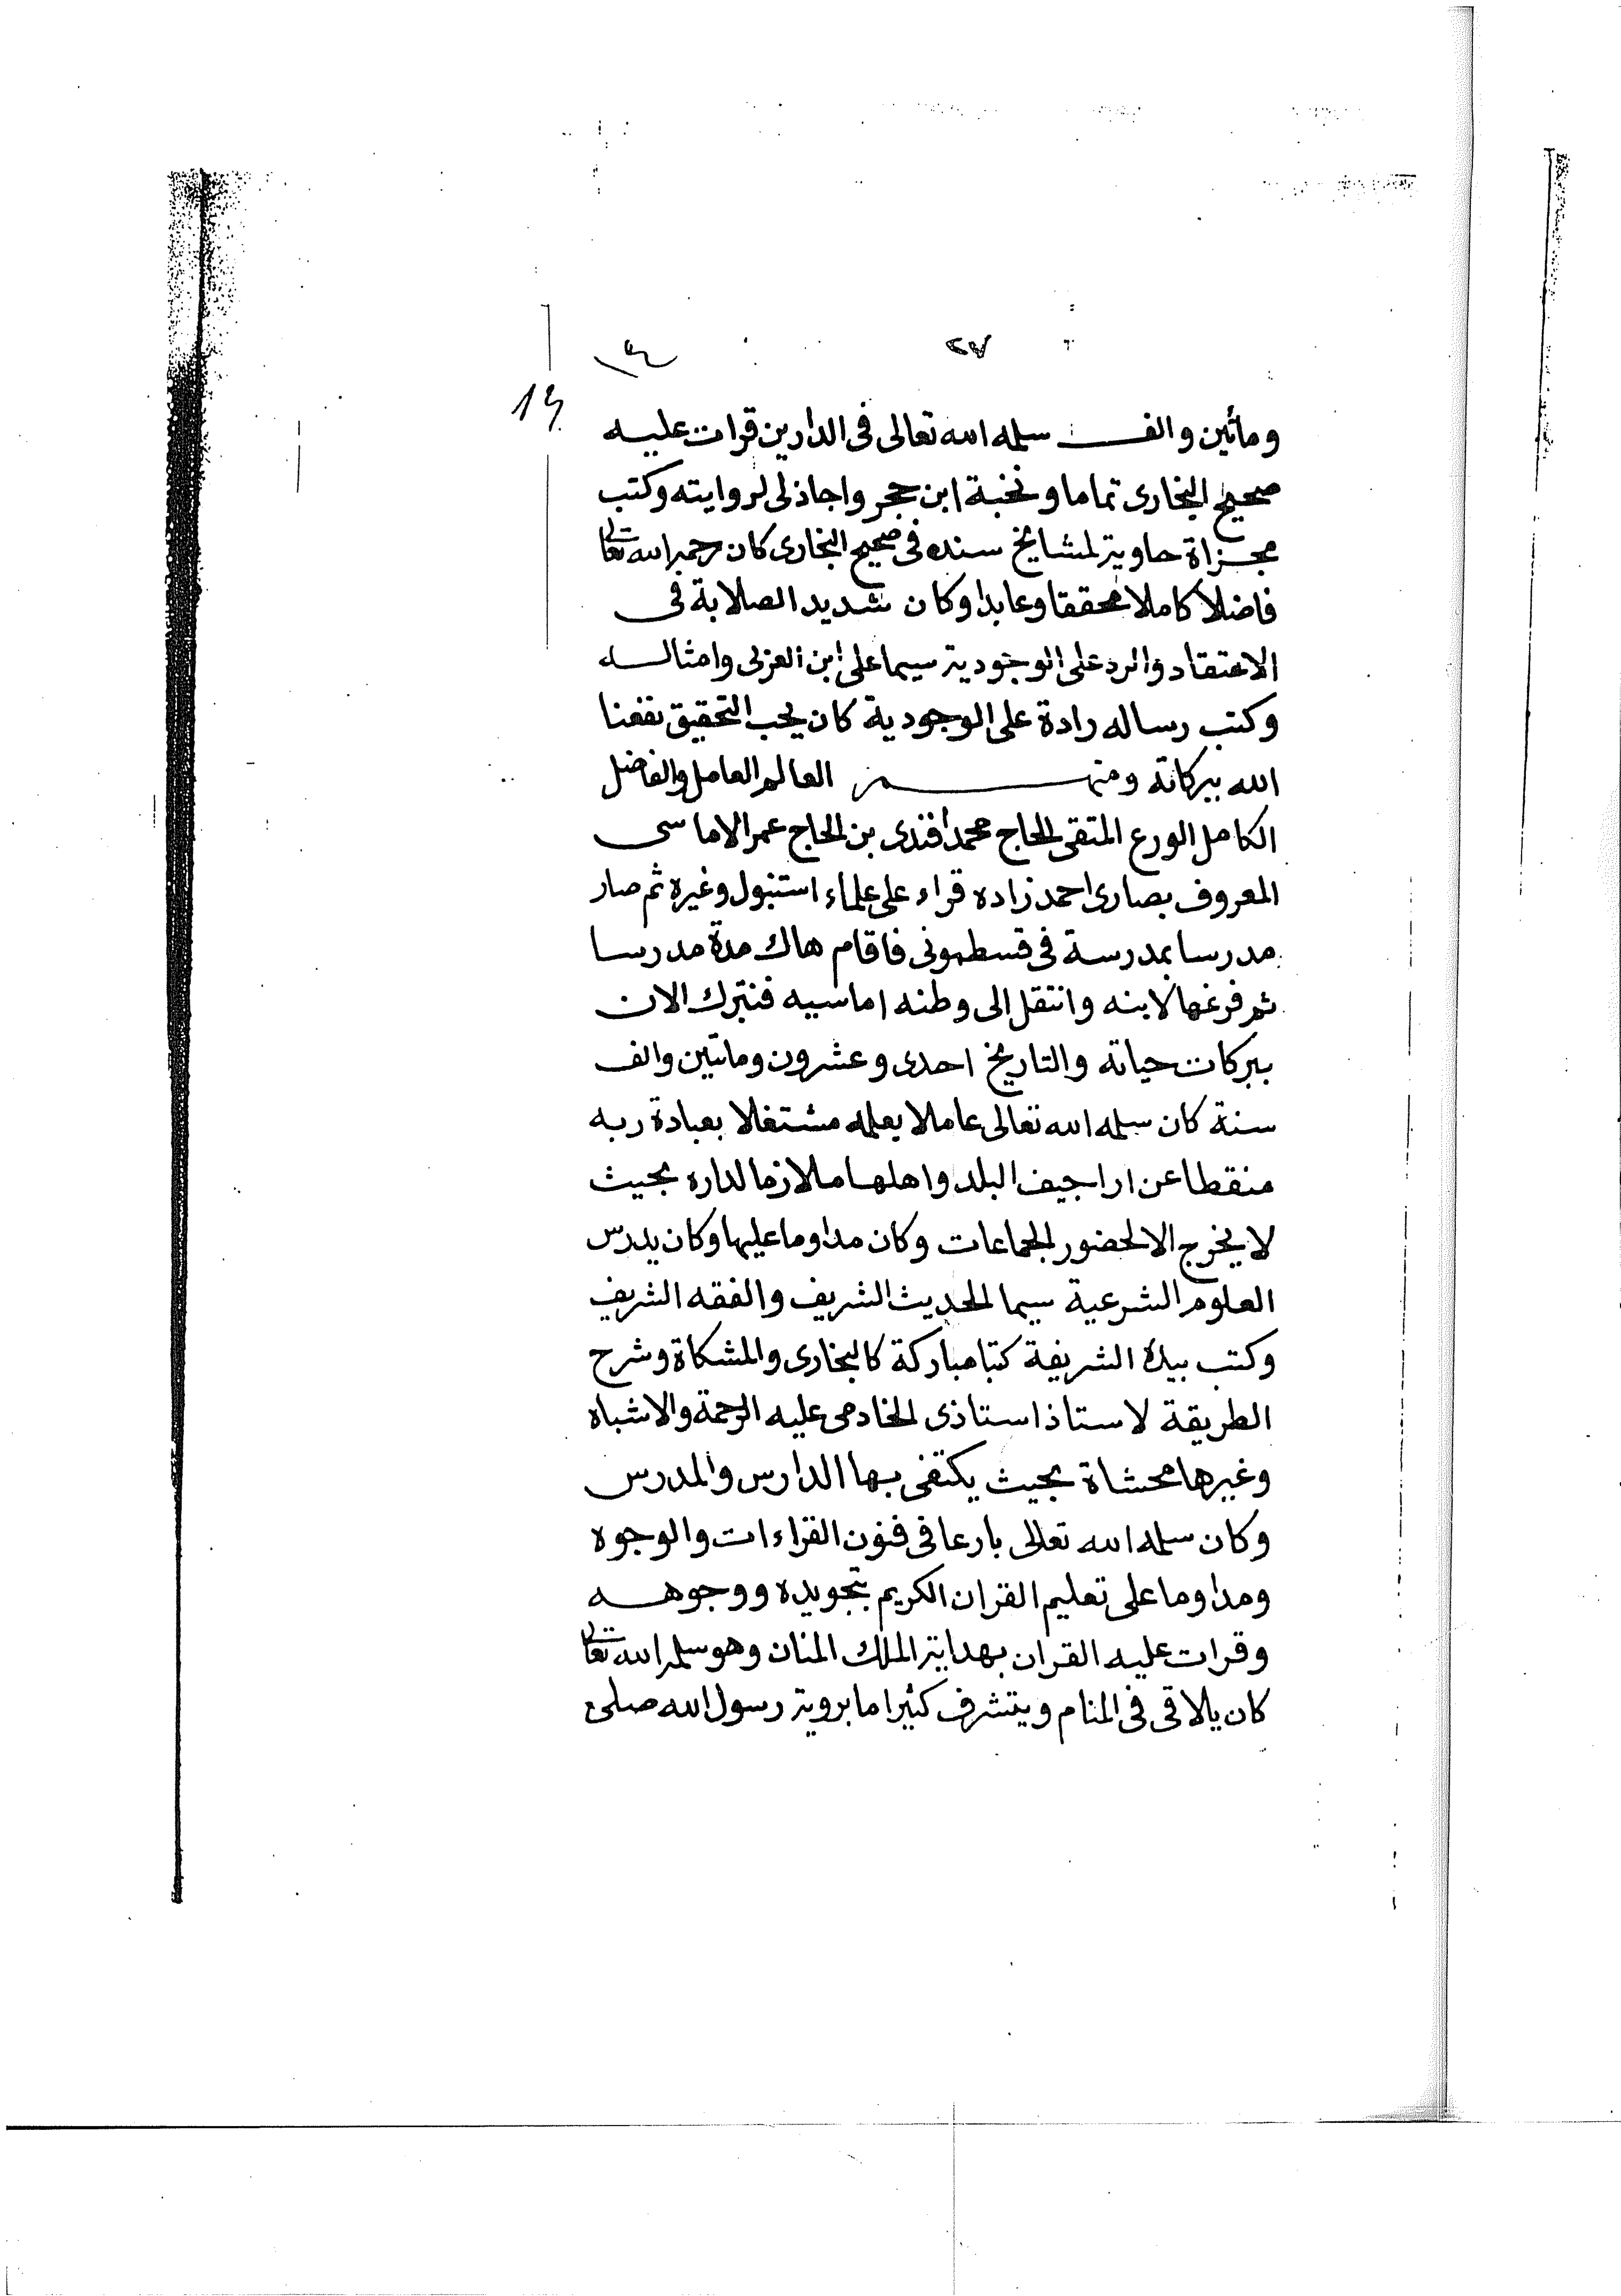 ٢٧
14
ومأتين والف سلمه الله تعالى فى الدارين قرات عليه
صحيح البخارى تماما ونخبة ابن حجر واجاذ لى لروايته وكتب
مجزاة حاوية لمشايخ سنده فى صحيح البخارى كان رحمه الله تعالى
فاضلا كاملا محققا وعابدا وكان شديد الصلابة فى
الاعتقاد والرد على الوجودية سيما على ابن العربى وامثاله
وكتب رساله رادة على الوجودية كان يحب التحقيق نفعنا
الله ببركاته ومنهم العالم العامل والفاضل
الكامل الورع المتقى الحاج محمد افندى بن الحاج عمر الاماسى
المعروف بصارى احمد زاده قراء على علماء استنبول وغيره ثم صار
مدرسا بمدرسة فى قسطمونى فاقام هاك مدة مدرسا
ثم فرغها لابنه وانتقل الى وطنه اماسيه فنتبرك الان
ببركات حياته والتاريخ احدى وعشرون ومائتين والف
سنة كان سلمه الله تعالى عاملا بعلمه مشتغلا بعبادة ربه
منقطعا عن اراجيف البلد واهلها ملازما لداره بحيث
لا يخرج الا لحضور الجماعات وكان مداوما عليها وكان يدرس
العلوم الشرعية سيما الحديث الشريف والفقه الشريف
وكتب بيده الشريفة كتبا مباركة كالبخارى والمشكاة وشرح
الطريقة لاستاذ استاذى الخادمى عليه الرحمة والاشباه
وغيرها محشاة بحيث يكتفى بها الدارس والمدرس
وكان سلمه الله تعالى بارعا فى فنون القراءات والوجوه
ومداوما على تعليم القران الكريم بتجويده ووجوهه
وقرات عليه القران بهداية الملك المنان وهو سلمه الله تعالى
كان يلاقى فى المنام ويتشرف كثيرا ما بروية رسول الله صلى